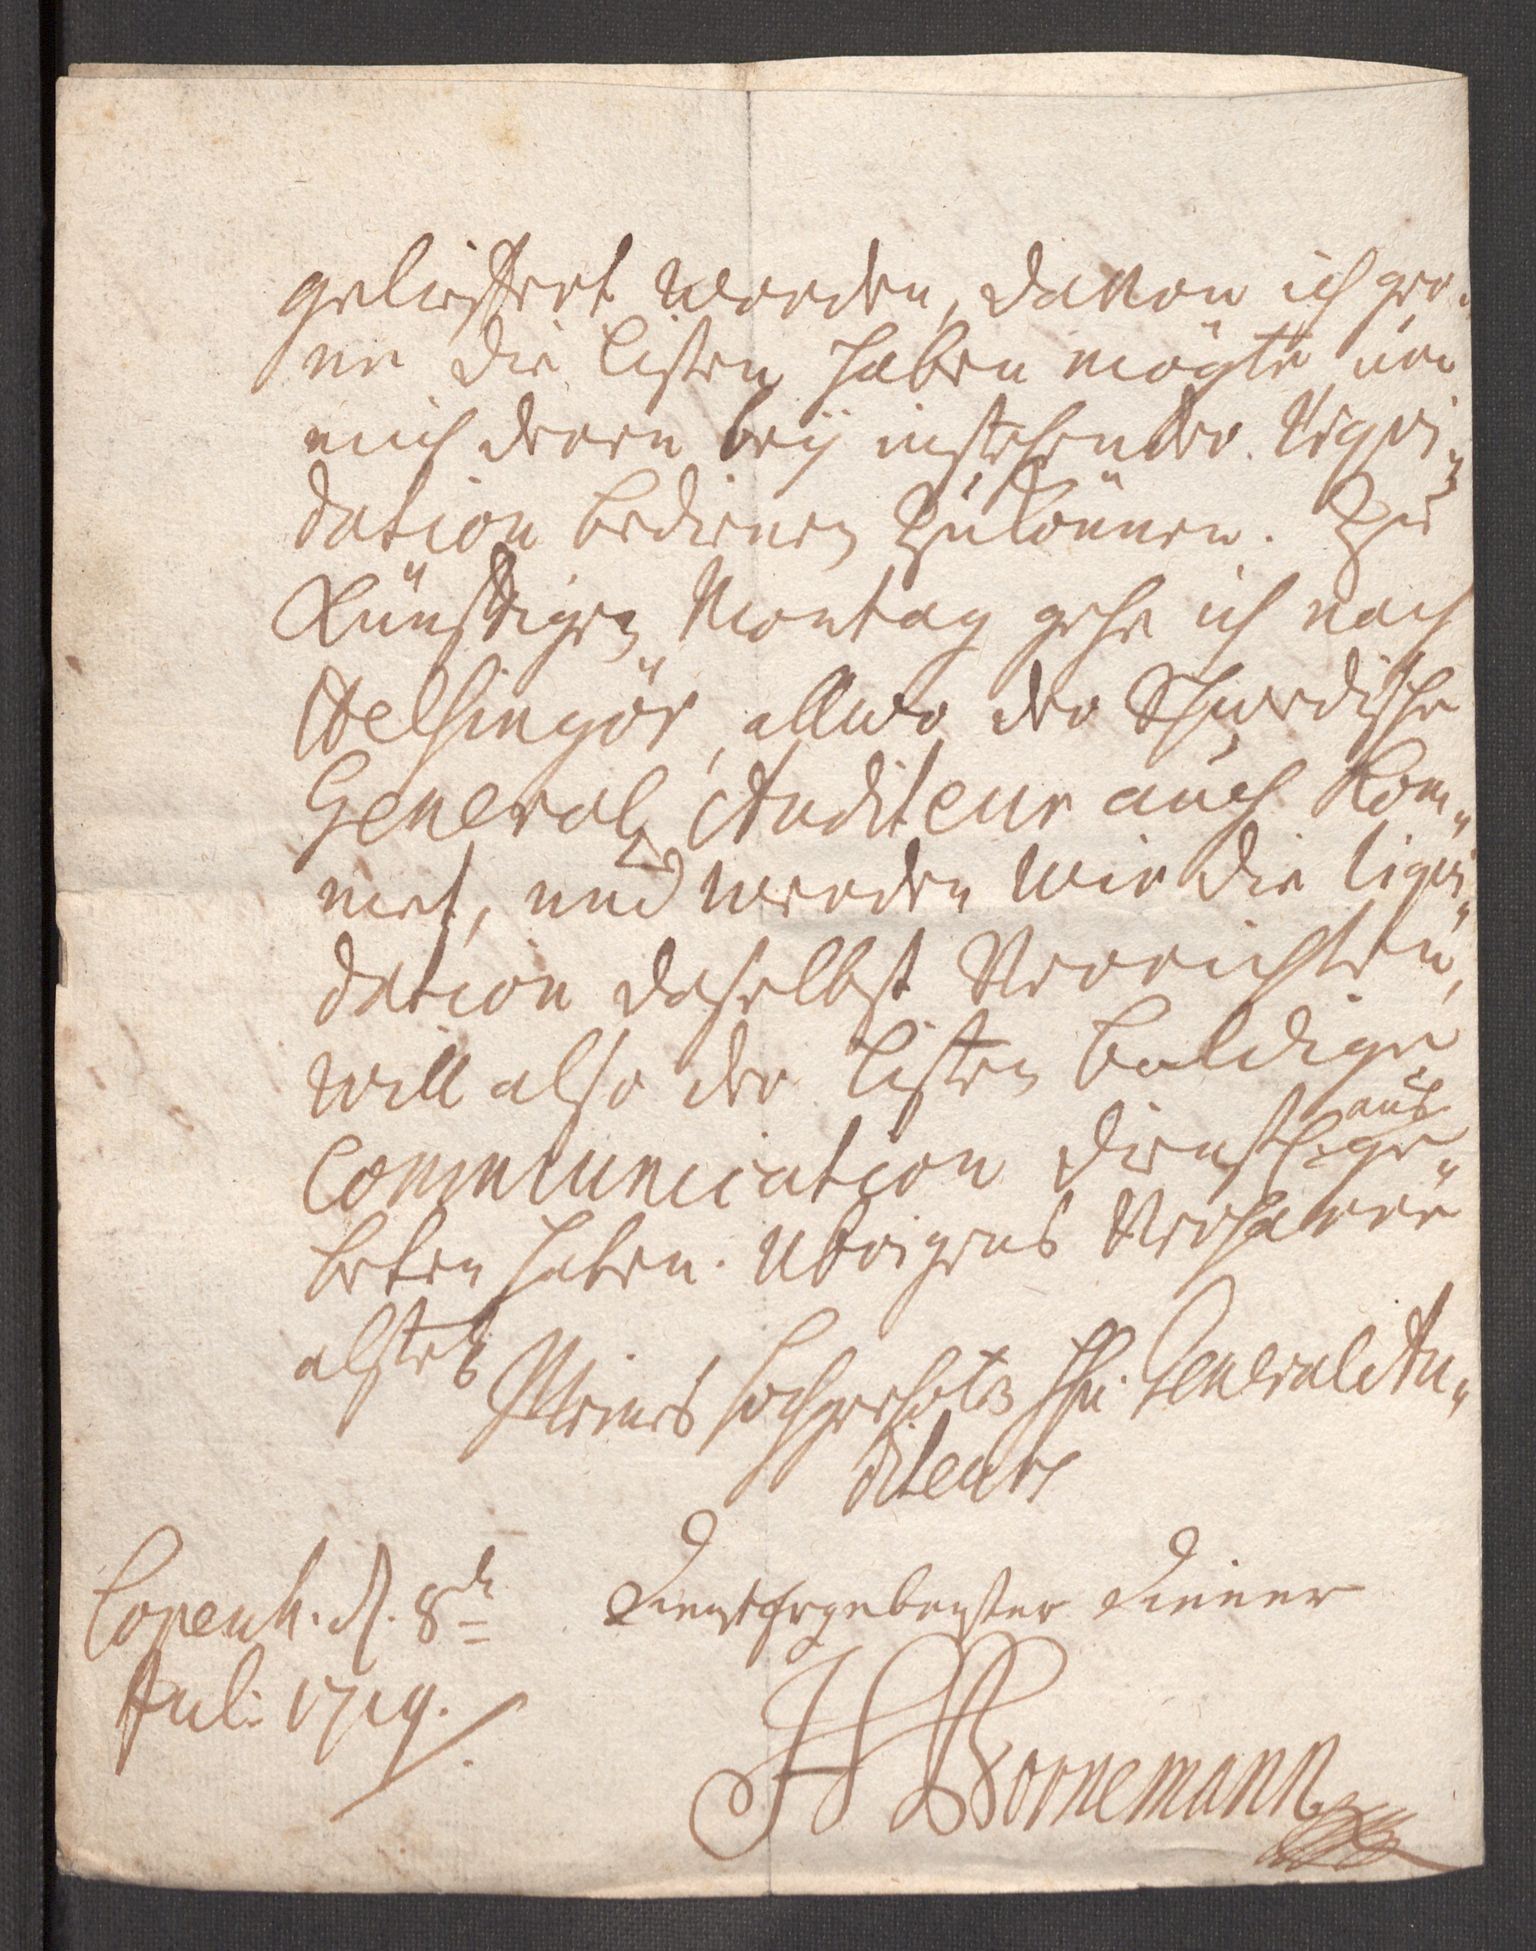 geliefert worden, davon ich ger„
ne die Listen haben mögte um
mich deren beÿ instehender Liqvi„
dation bedienen zu können. Zu
Künfftigen Montag gehe ich nach
Helsingör, allwo der Schwedische
General Auditeur auch kom„
met, und werden wir die liqvi„
dation daselbst verrichten,
will also der Listen baldige
communication dienstl. ausge„
beten haben. Ubrigens verharre
alstets
Meines hochgeehrten Hn. General Au„
diteurs
Copenh. d. 8de
Jul: 1719.
Dienstergebenster Diener
H Bornemann